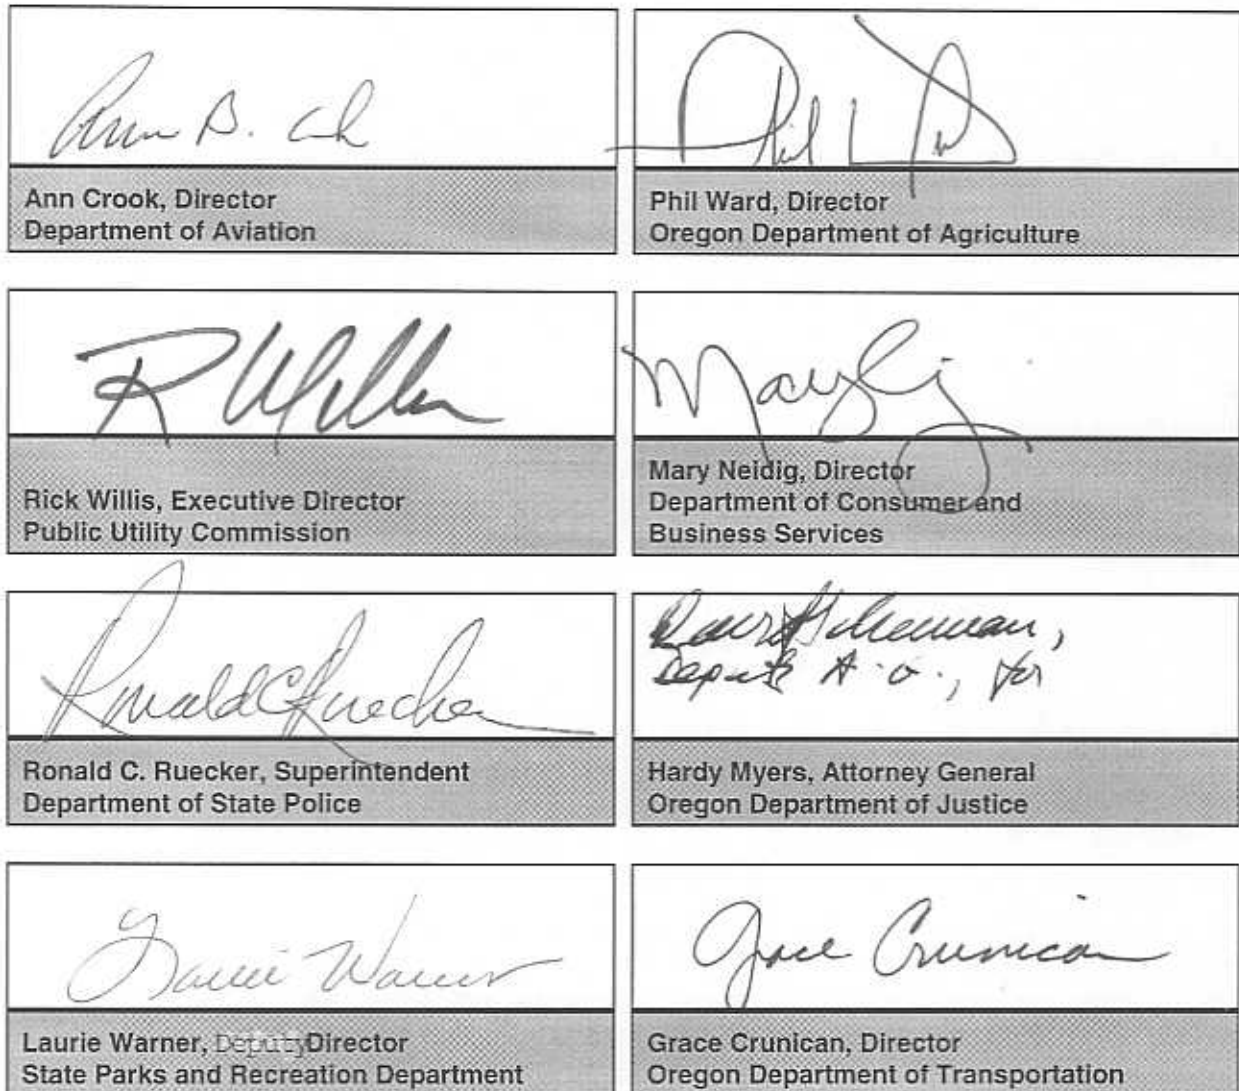 Ann B. Crook
Ann Crook, Director
Department of Aviation
Phil Ward
Phil Ward, Director
Oregon Department of Agriculture
R Willis
Rick Willis, Executive Director
Public Utility Commission
Mary
Mary Neidig, Director
Department of Consumer and
Business Services
Ronald C Ruecker
Ronald C. Ruecker, Superintendent
Department of State Police
Deputy A.G., for
Hardy Myers, Attorney General
Oregon Department of Justice
Laurie Warner
Laurie Warner, Deputy Director
State Parks and Recreation Department
Grace Crunican
Grace Crunican, Director
Oregon Department of Transportation